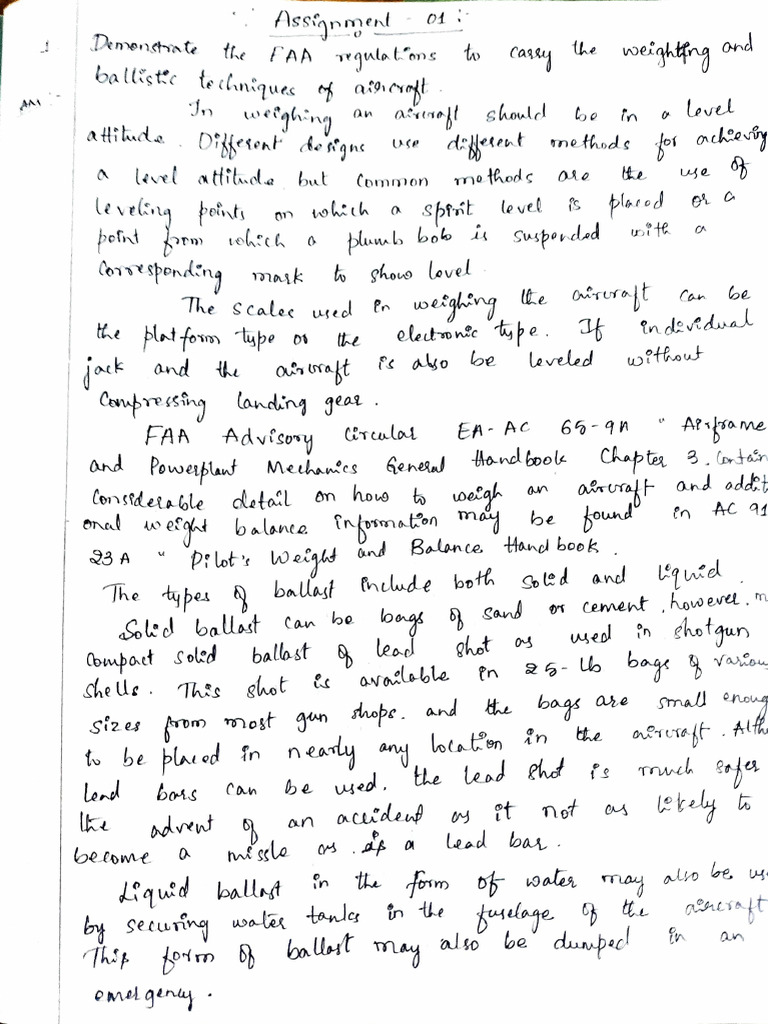 Assignment - 01 :
1. Demonstrate the FAA regulations to carry the weighting and
ballistic techniques of aircraft.
Ans :- In weighing an aircraft should be in a level
attitude. Different designs use different methods for achieving
a level attitude but common methods are the use of
leveling points on which a spirit level is placed or a
point from which a plumb bob is suspended with a
corresponding mark to show level.
The scales used in weighing the aircraft can be
the platform type or the electronic type. If individual
jack and the aircraft is also be leveled without
compressing landing gear.
FAA Advisory Circular EA-AC 65-9A " Airframe
and Powerplant Mechanics General Handbook Chapter 3. Contain
considerable detail on how to weigh an aircraft and addit
onal weight balance information may be found in AC 91
23A " Pilot's Weight and Balance Handbook.
The types of ballast include both solid and liquid.
Solid ballast can be bags of sand or cement, however, m
compact solid ballast of lead shot as used in shotgun
shells. This shot is available in 25-lb bags of variou
sizes from most gun shops. and the bags are small enoug
to be placed in nearly any location in the aircraft. Altho
lead bars can be used. the lead shot is much safer
the advent of an accident as it not as likely to
become a missle as is a lead bar.
Liquid ballast in the form of water may also be us
by securing water tanks in the fuselage of the aircraft
This form of ballast may also be dumped in an
emergency.